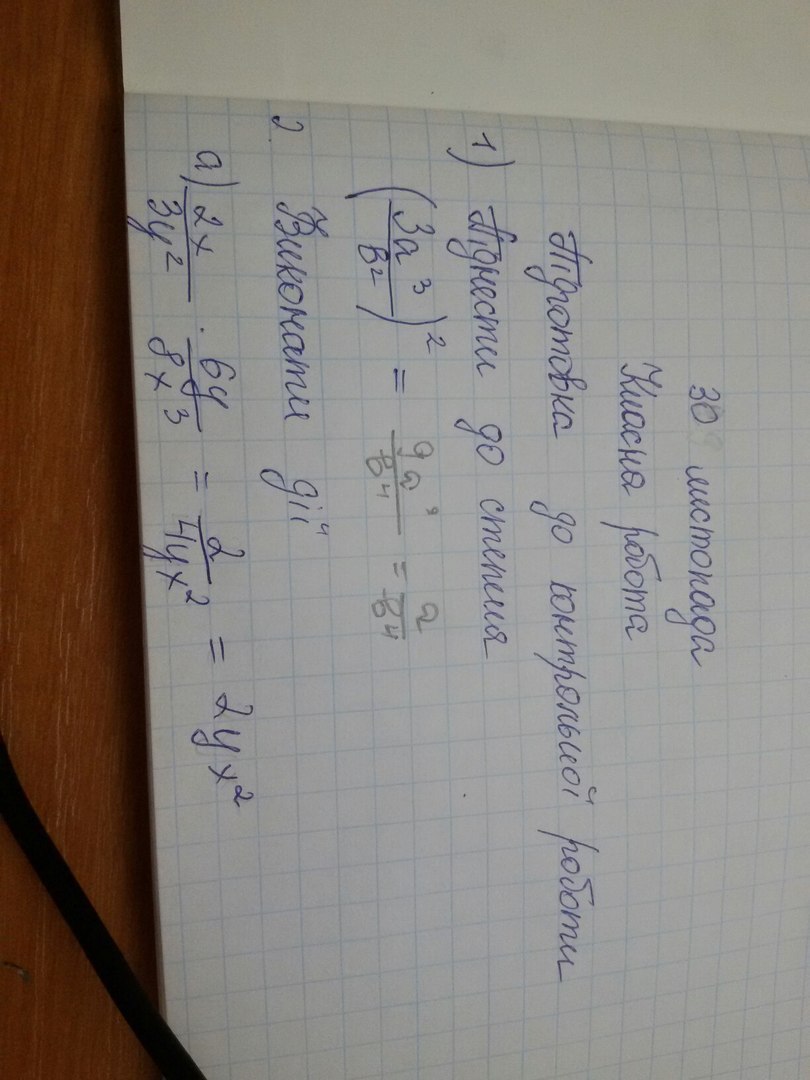 30 листопада
Класна робота
Підготовка до контрольної роботи
1) Піднести до степеня
(3a³/b²)² = 9a⁹/b⁴ = a/b⁴
2. Виконати дії
a) 2x/3y² · 6y/8x³ = 2/4yx² = 2yx²